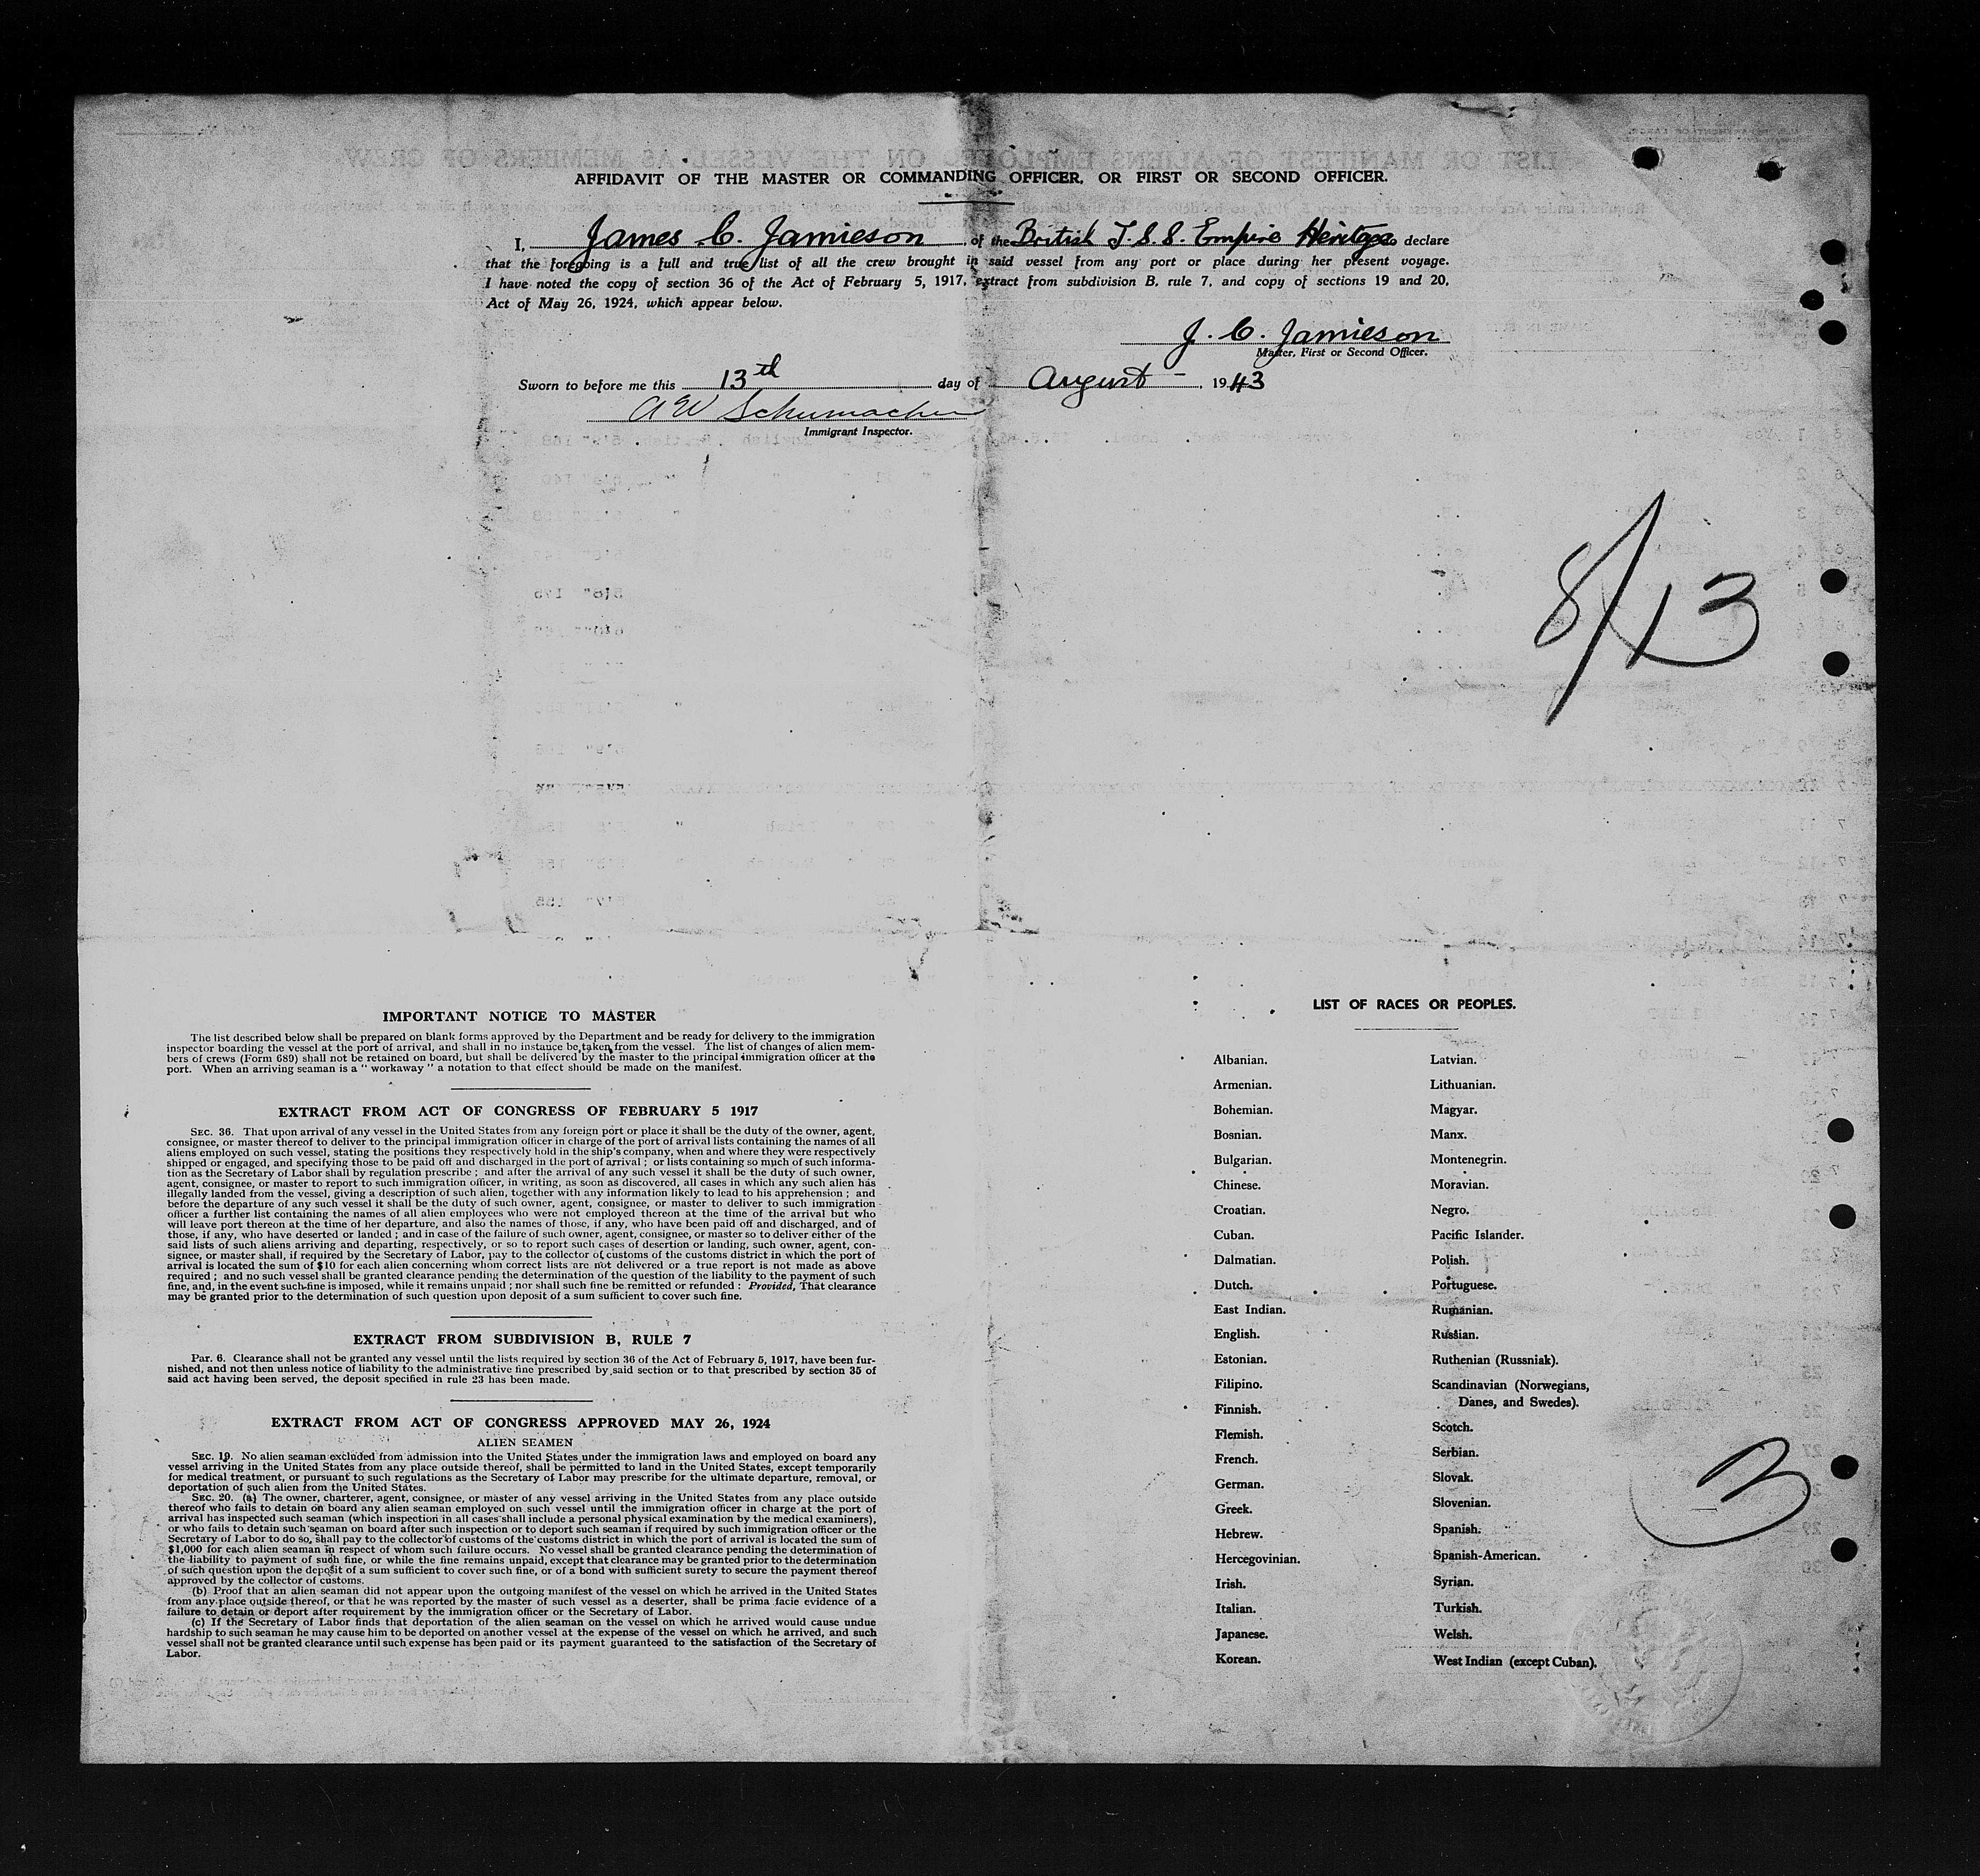 AFFIDAVIT OF THE MASTER OR COMMANDING OFFICER, OR FIRST OR SECOND OFFICER.
I, James C. Jamieson, of the British T.S.S. Empire Heritage do declare
that the foregoing is a full and true list of all the crew brought in said vessel from any port or place during her present voyage.
I have noted the copy of section 36 of the Act of February 5, 1917, extract from subdivision B, rule 7, and copy of sections 19 and 20,
Act of May 26, 1924, which appear below.
J. C. Jamieson
Master, First or Second Officer.
Sworn to before me this 13th day of August, 1943
A W Schumacher
Immigrant Inspector.
8/13
IMPORTANT NOTICE TO MASTER
The list described below shall be prepared on blank forms approved by the Department and be ready for delivery to the immigration
inspector boarding the vessel at the port of arrival, and shall in no instance be taken from the vessel. The list of changes of alien mem-
bers of crews (Form 689) shall not be retained on board, but shall be delivered by the master to the principal immigration officer at the
port. When an arriving seaman is a "workaway" a notation to that effect should be made on the manifest.
EXTRACT FROM ACT OF CONGRESS OF FEBRUARY 5 1917
SEC. 36. That upon arrival of any vessel in the United States from any foreign port or place it shall be the duty of the owner, agent,
consignee, or master thereof to deliver to the principal immigration officer in charge of the port of arrival lists containing the names of all
aliens employed on such vessel, stating the positions they respectively hold in the ship's company, when and where they were respectively
shipped or engaged, and specifying those to be paid off and discharged in the port of arrival; or lists containing so much of such informa-
tion as the Secretary of Labor shall by regulation prescribe; and after the arrival of any such vessel it shall be the duty of such owner,
agent, consignee, or master to report to such immigration officer, in writing, as soon as discovered, all cases in which any such alien has
illegally landed from the vessel, giving a description of such alien, together with any information likely to lead to his apprehension; and
before the departure of any such vessel it shall be the duty of such owner, agent, consignee, or master to deliver to such immigration
officer a further list containing the names of all alien employees who were not employed thereon at the time of the arrival but who
will leave port thereon at the time of her departure, and also the names of those, if any, who have been paid off and discharged, and of
those, if any, who have deserted or landed; and in case of the failure of such owner, agent, consignee, or master so to deliver either of the
said lists of such aliens arriving and departing, respectively, or so to report such cases of desertion or landing, such owner, agent, con-
signee, or master shall, if required by the Secretary of Labor, pay to the collector of customs of the customs district in which the port of
arrival is located the sum of $10 for each alien concerning whom correct lists are not delivered or a true report is not made as above
required; and no such vessel shall be granted clearance pending the determination of the question of the liability to the payment of such
fine, and, in the event such fine is imposed, while it remains unpaid; nor shall such fine be remitted or refunded: Provided, That clearance
may be granted prior to the determination of such question upon deposit of a sum sufficient to cover such fine.
EXTRACT FROM SUBDIVISION B, RULE 7
Par. 6. Clearance shall not be granted any vessel until the lists required by section 36 of the Act of February 5, 1917, have been fur-
nished, and not then unless notice of liability to the administrative fine prescribed by said section or to that prescribed by section 35 of
said act having been served, the deposit specified in rule 23 has been made.
EXTRACT FROM ACT OF CONGRESS APPROVED MAY 26, 1924
ALIEN SEAMEN
SEC. 19. No alien seaman excluded from admission into the United States under the immigration laws and employed on board any
vessel arriving in the United States from any place outside thereof, shall be permitted to land in the United States, except temporarily
for medical treatment, or pursuant to such regulations as the Secretary of Labor may prescribe for the ultimate departure, removal, or
deportation of such alien from the United States.
SEC. 20. (a) The owner, charterer, agent, consignee, or master of any vessel arriving in the United States from any place outside
thereof who fails to detain on board any alien seaman employed on such vessel until the immigration officer in charge at the port of
arrival has inspected such seaman (which inspection in all cases shall include a personal physical examination by the medical examiners),
or who fails to detain such seaman on board after such inspection or to deport such seaman if required by such immigration officer or the
Secretary of Labor to do so, shall pay to the collector of customs of the customs district in which the port of arrival is located the sum of
$1,000 for each alien seaman in respect of whom such failure occurs. No vessel shall be granted clearance pending the determination of
the liability to payment of such fine, or while the fine remains unpaid, except that clearance may be granted prior to the determination
of such question upon the deposit of a sum sufficient to cover such fine, or of a bond with sufficient surety to secure the payment thereof
approved by the collector of customs.
(b) Proof that an alien seaman did not appear upon the outgoing manifest of the vessel on which he arrived in the United States
from any place outside thereof, or that he was reported by the master of such vessel as a deserter, shall be prima facie evidence of a
failure to detain or deport after requirement by the immigration officer or the Secretary of Labor.
(c) If the Secretary of Labor finds that deportation of the alien seaman on the vessel on which he arrived would cause undue
hardship to such seaman he may cause him to be deported on another vessel at the expense of the vessel on which he arrived, and such
vessel shall not be granted clearance until such expense has been paid or its payment guaranteed to the satisfaction of the Secretary of
Labor.
LIST OF RACES OR PEOPLES.
Albanian.
Armenian.
Bohemian.
Bosnian.
Bulgarian.
Chinese.
Croatian.
Cuban.
Dalmatian.
Dutch.
East Indian.
English.
Estonian.
Filipino.
Finnish.
Flemish.
French.
German.
Greek.
Hebrew.
Hercegovinian.
Irish.
Italian.
Japanese.
Korean.
Latvian.
Lithuanian.
Magyar.
Manx.
Montenegrin.
Moravian.
Negro.
Pacific Islander.
Polish.
Portuguese.
Rumanian.
Russian.
Ruthenian (Russniak).
Scandinavian (Norwegians,
Danes, and Swedes).
Scotch.
Serbian.
Slovak.
Slovenian.
Spanish.
Spanish-American.
Syrian.
Turkish.
Welsh.
West Indian (except Cuban).
3